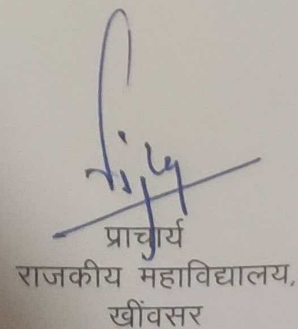 प्राचार्य
राजकीय महाविद्यालय,
खींवसर